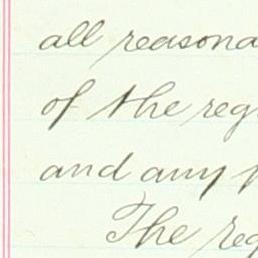 all reasona
of the reg
and any
The reg